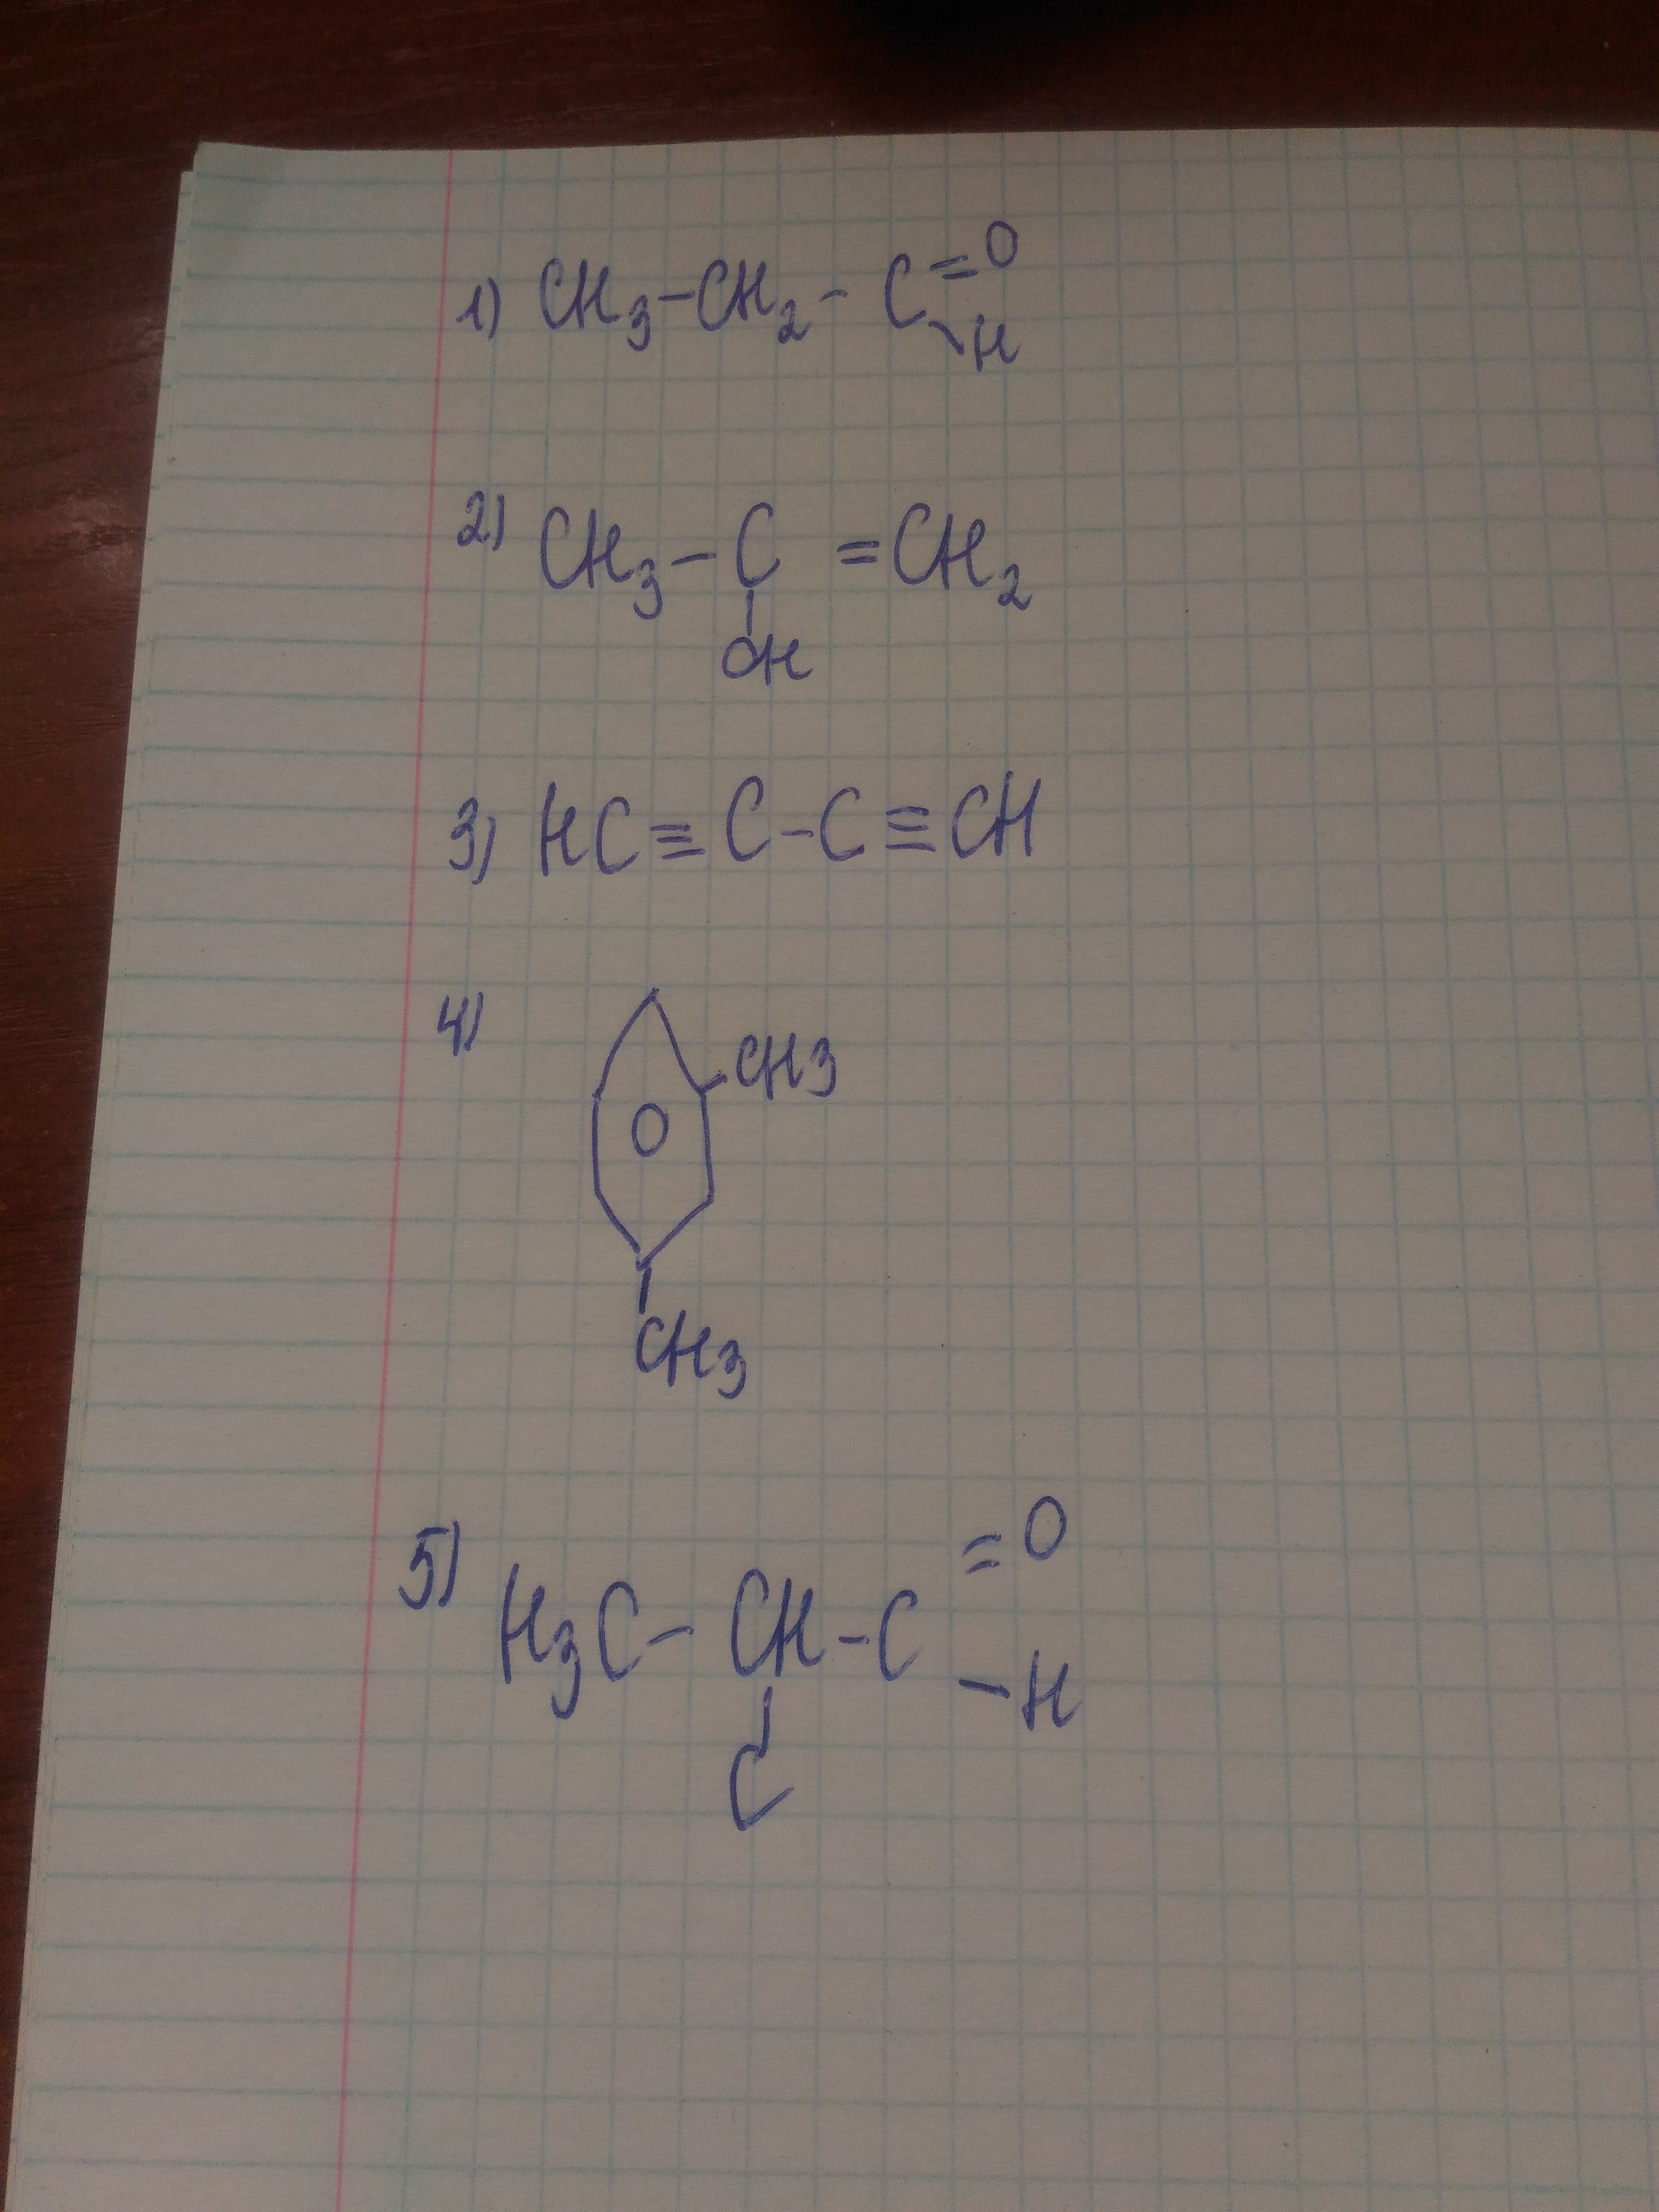 1) CH3-CH2-C=O
-H
2) CH3-C=CH2
OH
3) HC≡C-C≡CH
4)
CH3
CH3
5) H3C-CH-C=O
-H
C